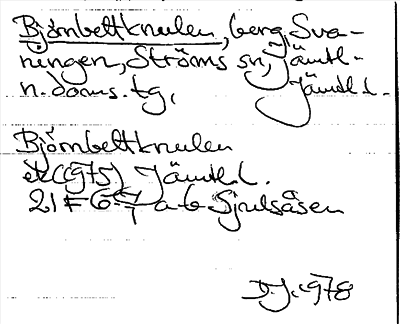 Björnbettknulen, berg, Sva-
ningen, Ströms sn, Jämtl.
n. doms. tg, Jämtl.
Björnbettknulen
ek (1975) Jämtl.
21 F 6-7 a-b Sjulsåsen
D.J. 1978